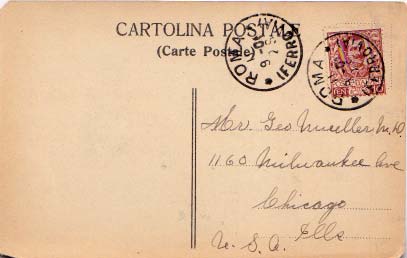 CARTOLINA POSTALE
(Carte Postale)
ROMA
(FERROVIA)
ROMA
(FERROVIA)
CENT 10
Mr. Geo Mueller M.D.
1160 Milwaukee Ave
Chicago
Ills
U. S. A.